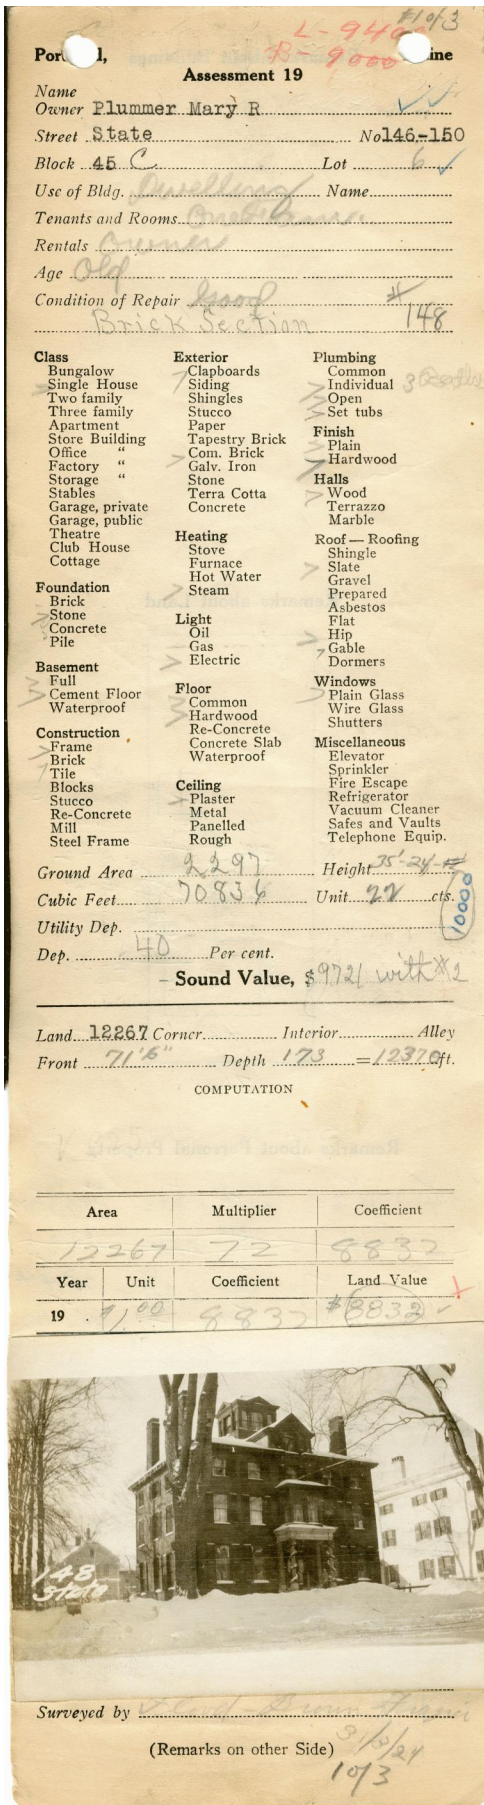 #1 of 3
L - 9400
B - 9000
Assessment 19
Name
Owner Plummer Mary R
Street State No 146-150
Block 45 C Lot 6
Use of Bldg. Dwelling Name
Tenants and Rooms One
Rentals Owner
Age Old
Condition of Repair Good #
Brick Section 148
Class
Bungalow
Single House
Two family
Three family
Apartment
Store Building
Office "
Factory "
Storage "
Stables
Garage, private
Garage, public
Theatre
Club House
Cottage
Foundation
Brick
Stone
Concrete
Pile
Basement
Full
Cement Floor
Waterproof
Construction
Frame
Brick
Tile
Blocks
Stucco
Re-Concrete
Mill
Steel Frame
Exterior
Clapboards
Siding
Shingles
Stucco
Paper
Tapestry Brick
Com. Brick
Galv. Iron
Stone
Terra Cotta
Concrete
Heating
Stove
Furnace
Hot Water
Steam
Light
Oil
Gas
Electric
Floor
Common
Hardwood
Re-Concrete
Concrete Slab
Waterproof
Ceiling
Plaster
Metal
Panelled
Rough
Plumbing
Common
Individual 3 Baths
Open
Set tubs
Finish
Plain
Hardwood
Halls
Wood
Terrazzo
Marble
Roof — Roofing
Shingle
Slate
Gravel
Prepared
Asbestos
Flat
Hip
Gable
Dormers
Windows
Plain Glass
Wire Glass
Shutters
Miscellaneous
Elevator
Sprinkler
Fire Escape
Refrigerator
Vacuum Cleaner
Safes and Vaults
Telephone Equip.
Ground Area 2297 Height 35'-24-
Cubic Feet 70836 Unit 22 cts.
10000
Utility Dep.
Dep. 40 Per cent.
Sound Value, $9721 with #2
Land 12267 Corner Interior Alley
Front 71'6" Depth 173 = 12370 ft.
COMPUTATION
Area Multiplier Coefficient
12267 72 8832
Year Unit Coefficient Land Value
19 $1.00 8832 $8832
148
State
Surveyed by
(Remarks on other Side)
1 of 3